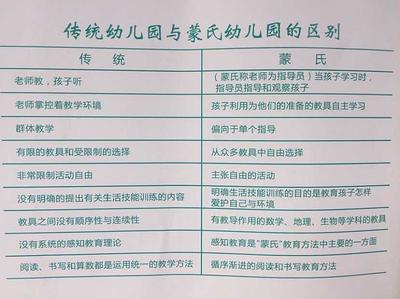 传统幼儿园与蒙氏幼儿园的区别
传 统
蒙 氏
老师教，孩子听
（蒙氏称老师为指导员）当孩子学习时，
指导员指导和观察孩子
老师掌控着教学环境
孩子利用为他们的准备的教具自主学习
群体教学
偏向于单个指导
有限的教具和受限制的选择
从众多教具中自由选择
非常限制活动自由
主张自由的活动
没有明确的提出有关生活技能训练的内容
明确生活技能训练的目的是教育孩子怎样
爱护自己与环境
教具之间没有顺序性与连续性
有教导作用的数学、地理、生物等学科的教具
没有系统的感知教育理论
感知教育是“蒙氏”教育方法中主要的一方面
阅读、书写和算数都是运用统一的教学方法
循序渐进的阅读和书写教育方法